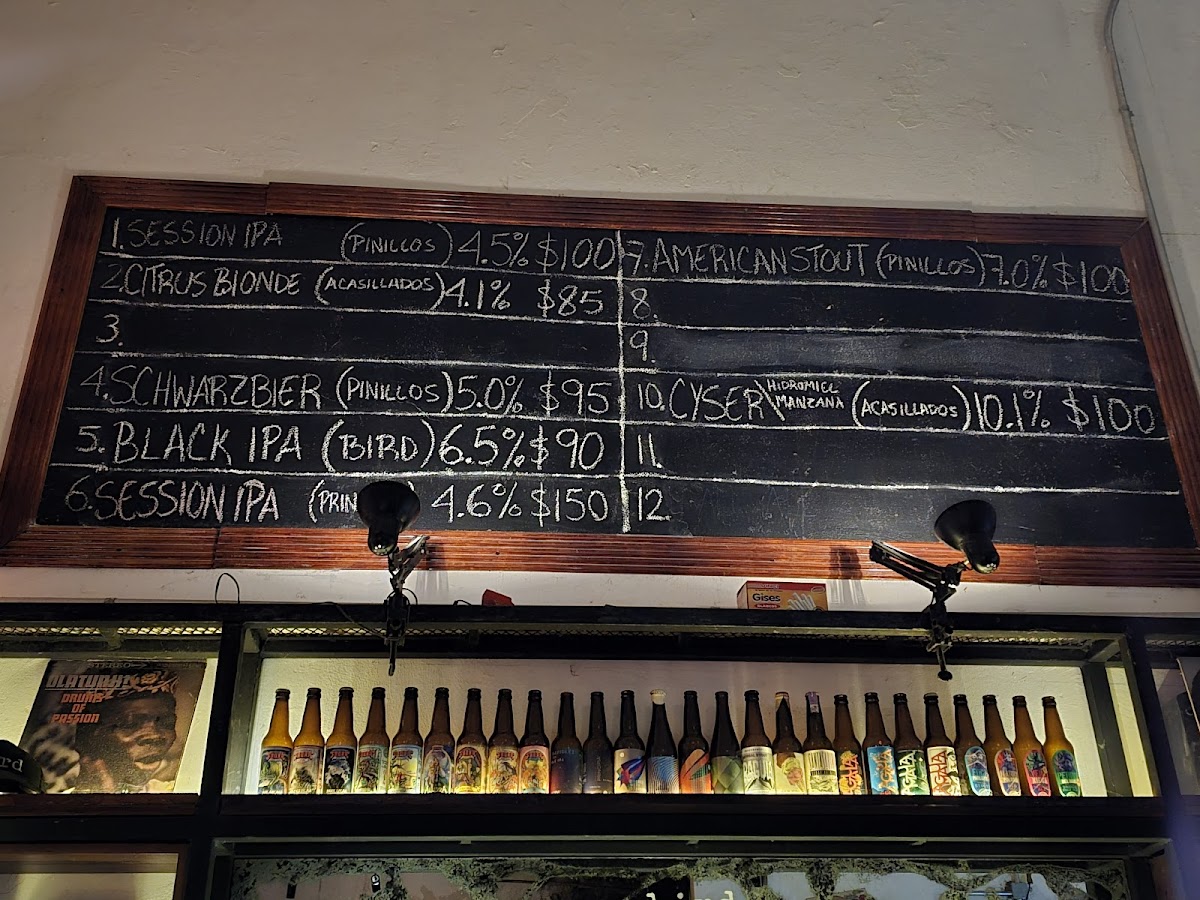 1. SESSION IPA (PINILLOS) 4.5% $100
2. CITRUS BLONDE (ACASILLADOS) 4.1% $85
3.
4. SCHWARZBIER (PINILLOS) 5.0% $95
5. BLACK IPA (BIRD) 6.5% $90
6. SESSION IPA 4.6% $150
7. AMERICAN STOUT (PINILLOS) 7.0% $100
8.
9.
10. CYSER\HIDROMIEL MANZANA (ACASILLADOS) 10.1% $100
11.
12.
Gises
STEREO
OLATUNJI!
DRUMS
OF
PASSION